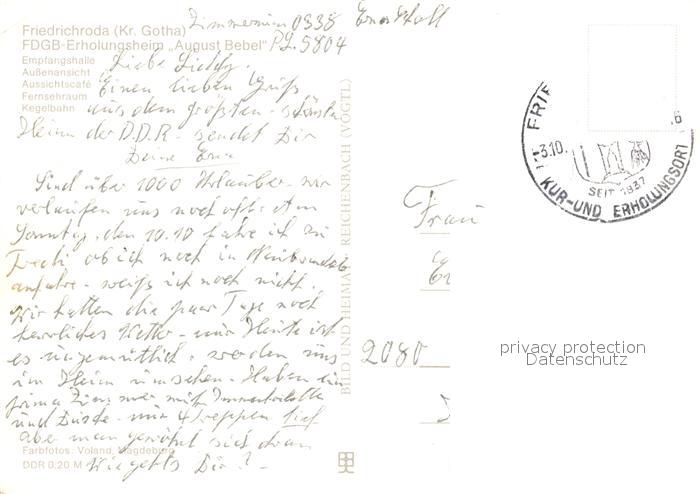 Friedrichroda (Kr. Gotha)
FDGB-Erholungsheim „August Bebel"
Empfangshalle
Außenansicht
Aussichtscafé
Fernsehraum
Kegelbahn
Zimmernum 0338
PLZ. 5804
Liebe
Einen lieben Gruß
aus dem größten - schönsten
Heim der D.D.R. sendet Dir
Deine Erna
Sind über 1000 Urlauber - wir
verlaufen uns noch oft. Am
Sonntag, den 10.10 fahre ich zu
ob ich noch in
anfahre - weiß ich noch nicht.
Wir hatten die paar Tage noch
herrliches Wetter - nur Heute ist
es ungemütlich. werden uns
im Heim umsehen. Haben ein
prima Zimmer mit Innentoilette
und Dusche - nur 4 Treppen tief
aber man gewöhnt sich dran
Wie gehts Dir? -
Farbfotos: Voland, Magdeburg
DDR 0,20 M
BILD UND HEIMAT REICHENBACH (VOGTL)
Frau
2080
FRIE
-3.10.
SEIT 1837
KUR-UND ERHOLUNGSORT
privacy protection
Datenschutz